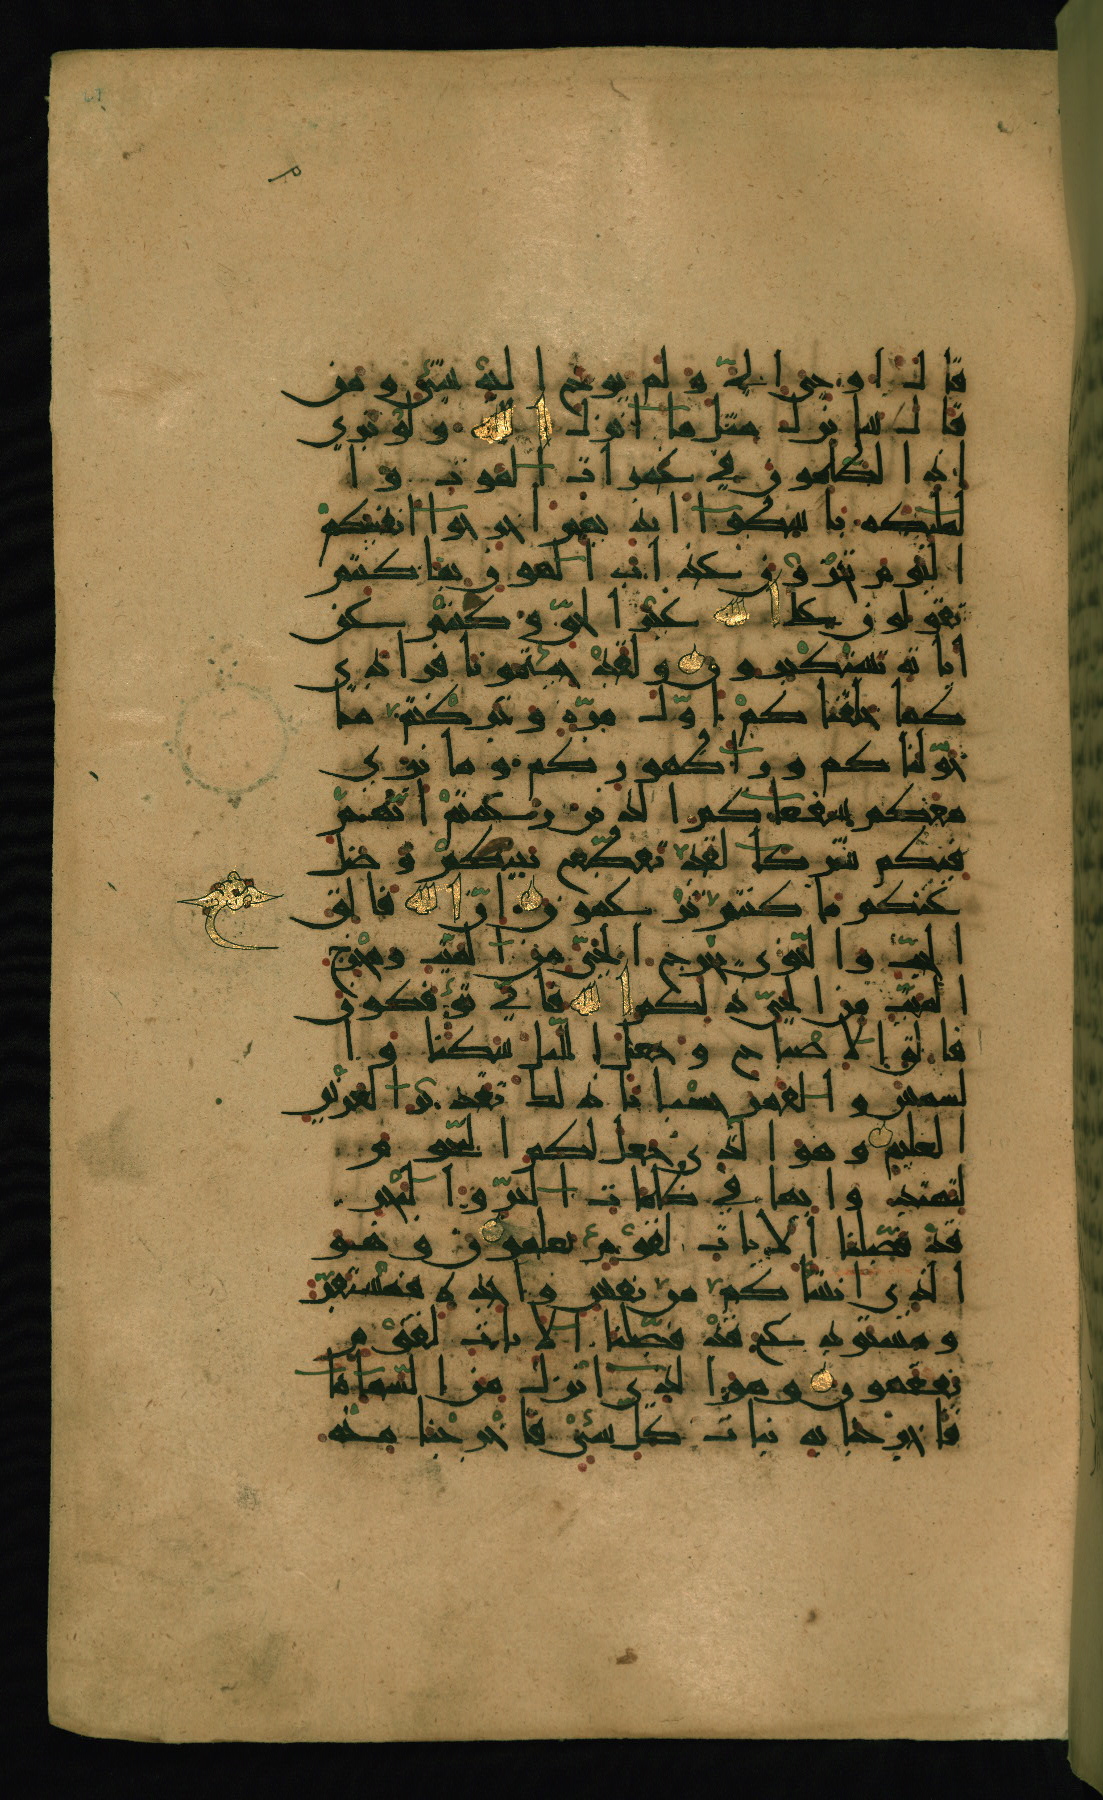 قال اوحي الي ولم يوح اليه شيء ومن
قال سانزل مثل ما انزل الله ولو ترى
اذ الظالمون في غمرات الموت وا
لملئكه باسطوا ايديهم اخرجوا انفسكم
اليوم تجزون عذاب الهون بما كنتم
تقولون على الله غير الحق وكنتم عن
اياته تستكبرون ولقد جئتمونا فرادى
كما خلقناكم اول مره وتركتم ما
خولناكم وراء ظهوركم وما نرى
معكم شفعاءكم الذين زعمتم انهم
فيكم شركا لقد تقطع بينكم وضل
عنكم ما كنتم تزعمون ان الله فالق
الحب والنوى يخرج الحي من الميت ومخرج
الميت من الحي ذلكم الله فاني توفكون
فالق الاصباح وجعل الليل سكنا وا
لشمس والقمر حسبانا ذلك تقدير العزيز
العليم وهو الذي جعل لكم النجوم
لتهتدوا بها في ظلمات البر والبحر
قد فصلنا الايات لقوم يعلمون وهو
الذي انشاكم من نفس واحده فمستقر
ومستودع قد فصلنا الايات لقوم
يفقهون وهو الذي انزل من السماء ماء
فاخرجنا به نبات كل شيء فاخرجنا منه